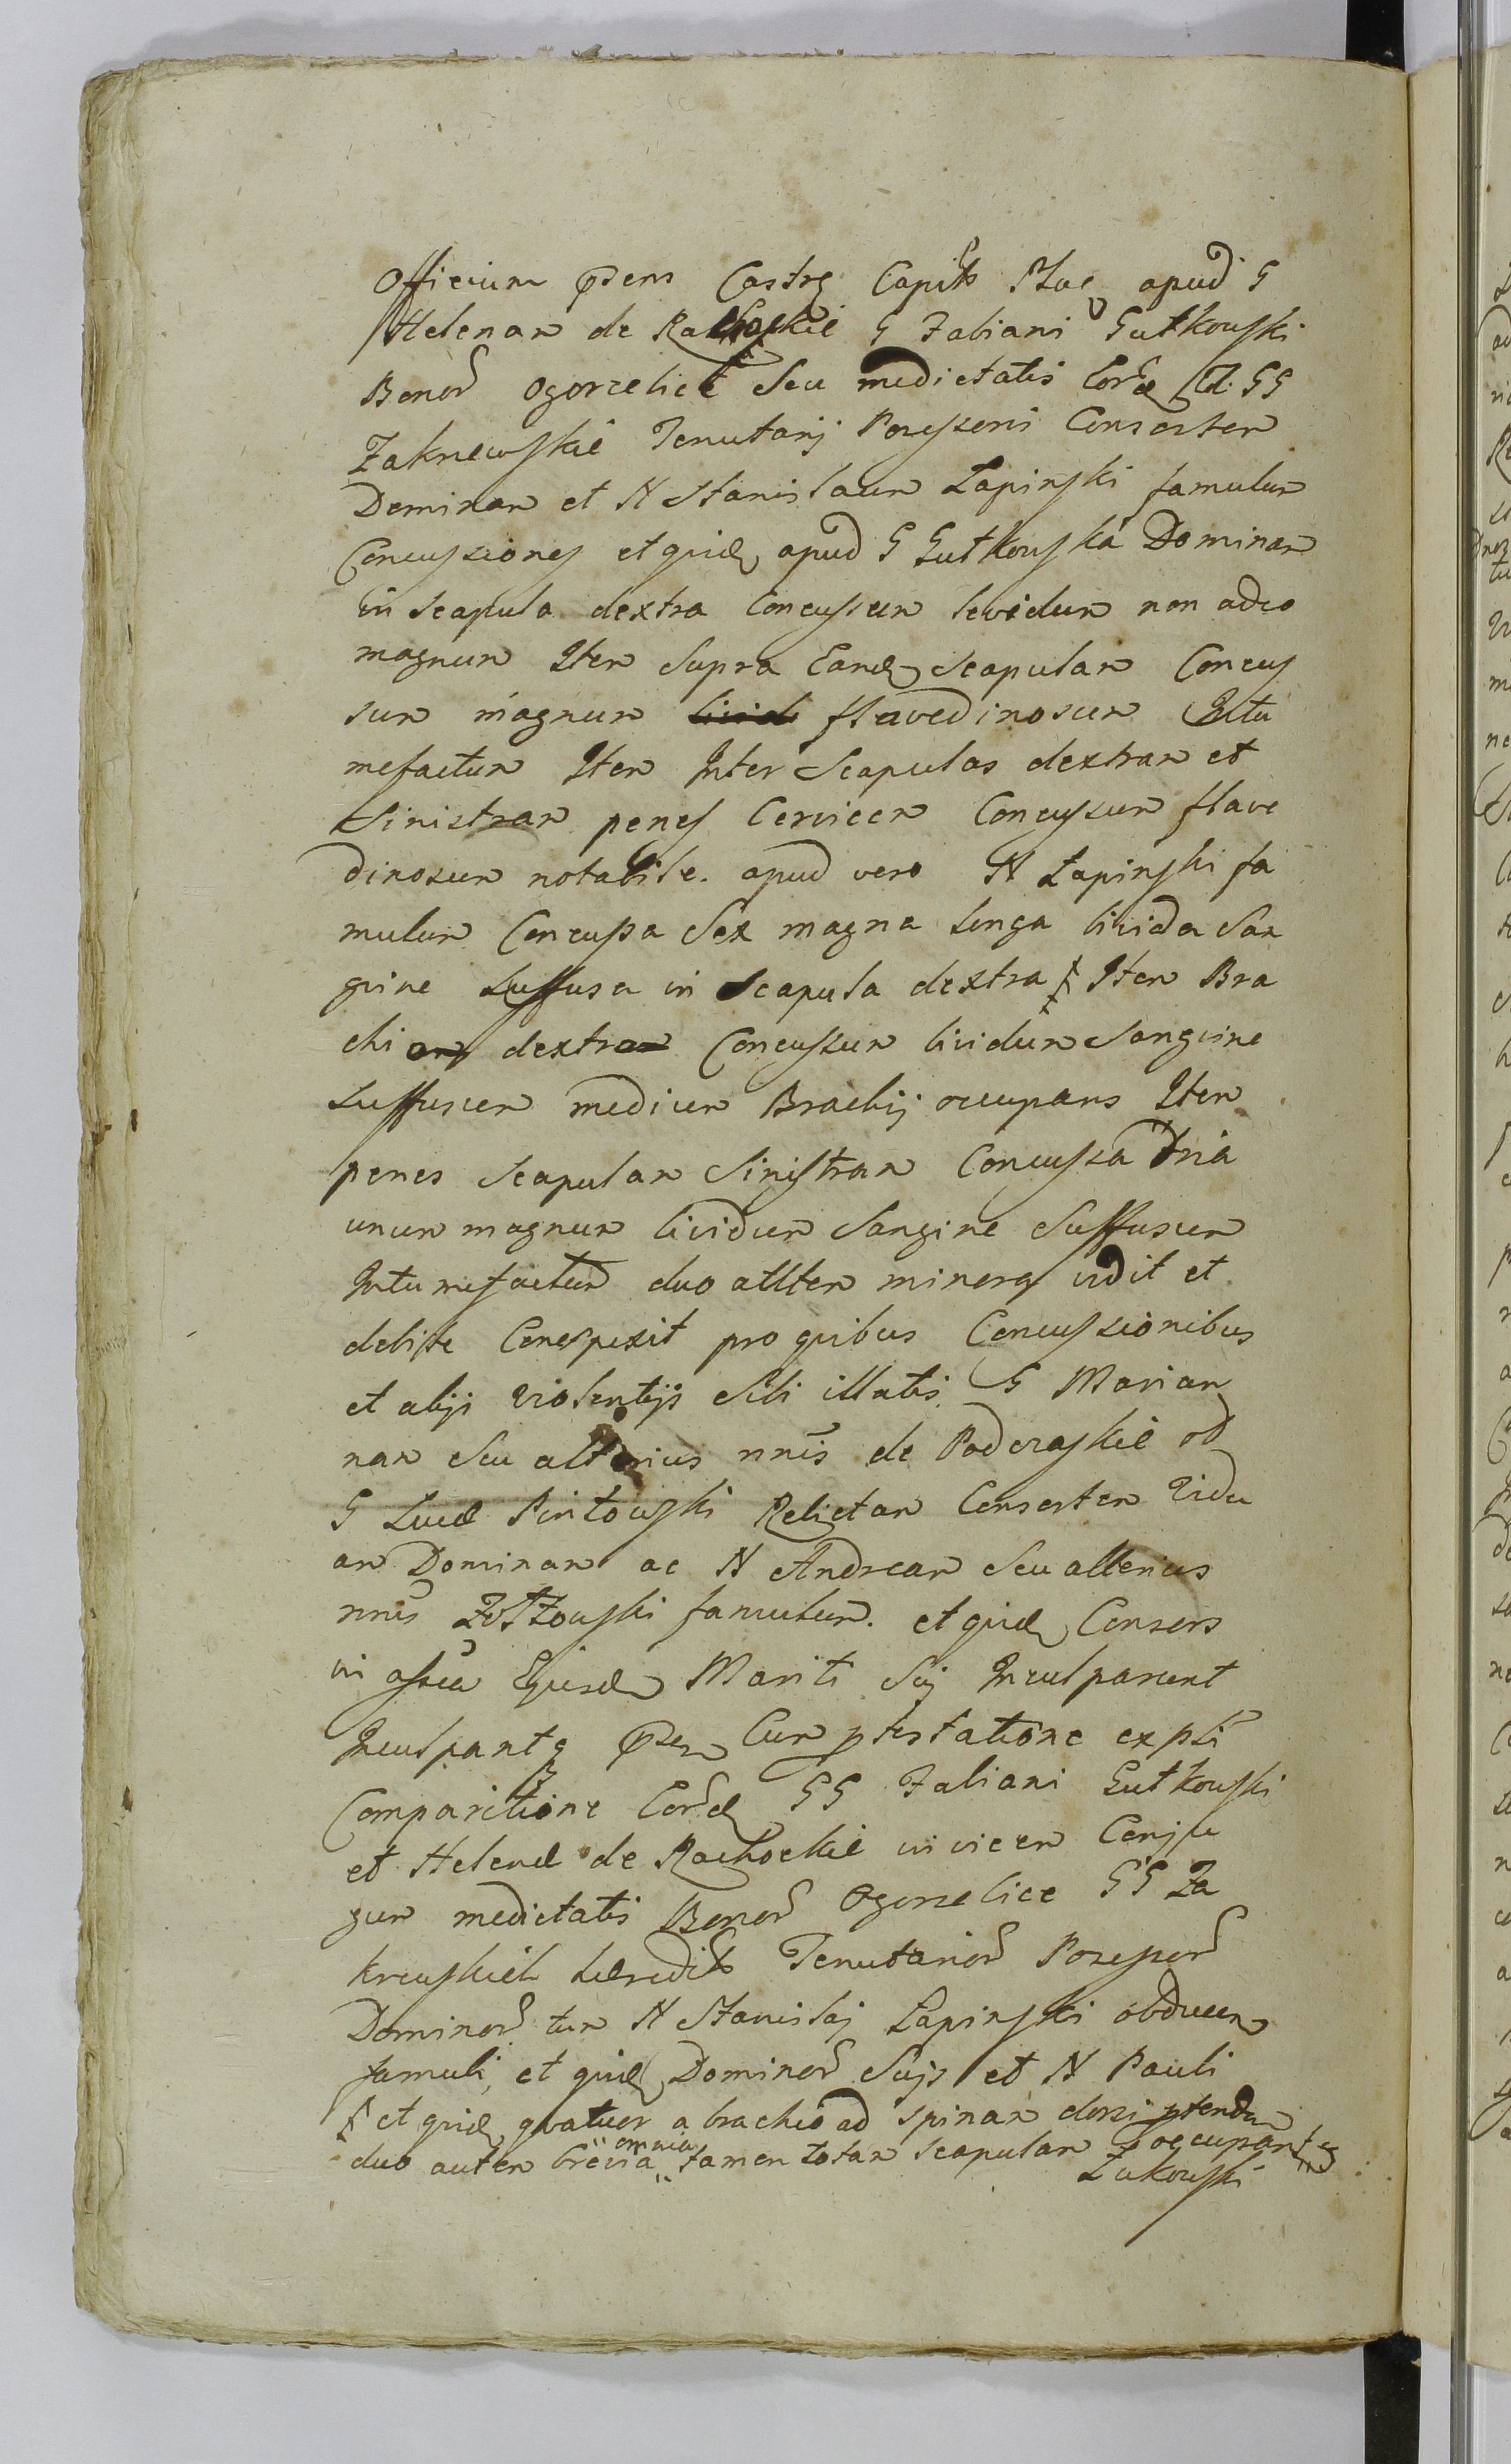 Officium pdens Castre Capitt Ploc apud G
Helenam de Rachockie G Fabiani Gutkowski
Bonor Ogorzelice Seu medietatis Eorde GG
Zakrzewskie Tenutarij Possessoris Consortem
Dominam et N Stanislaum Lapinski famulum
Concussiones et quid apud G Gutkowska Dominam
in Scapula dextra Concussum lividum non adeo
magnum Item Supra Eand Scapulam Concus
sum magnum livid flavedinosum Intu
mefactum Item Inter Scapulas dextram et
Sinistram penes Cervicem Concussum flave
dinosum notabile. apud vero N Lapinski fa
mulum Concussa Sex magna longa livida San
gvine Suffusa in Scapula dextra ⸸ Item Bra
chi dextr Concussum lividum Sangvine
Suffusum medium Brachij occupans Item
penes Scapulam Sinistram Concussa tria
unum magnum lividum Sangvine Suffusum
Intumefactum duo autem minora vdit et
debite Conspexit pro quibus Concussionibus
et alijs violentijs Sibi illatis G Marian
nam Seu alterius nnis de Podczaskie od
G Luce Pintowski Relictam Consortem Vidu
am Dominam ac N Andream Seu alterius
nnis Zoltowski famulum. et quid Consors
in assia Ejusd Mariti Sui Inculparunt
Inculpantq pden Cum ptestatione expssi
Comparitione Eord GG Fabiani Gutkowski
et Helene de Rachockie invicem Conju
gum medietatis Bonor Ogorzelice GG Za
krzewskich hredit Tenutarior Possessor
Dominor tum N Stanislaj Lapinski obducen
famuli, et quid Dominor Suis et N Pauli
⸸ et quid quatuor a brachio ad spinam dorsi ptenden
duo autem brevia omnia tamen totam scapulam occupantes
Zukowski